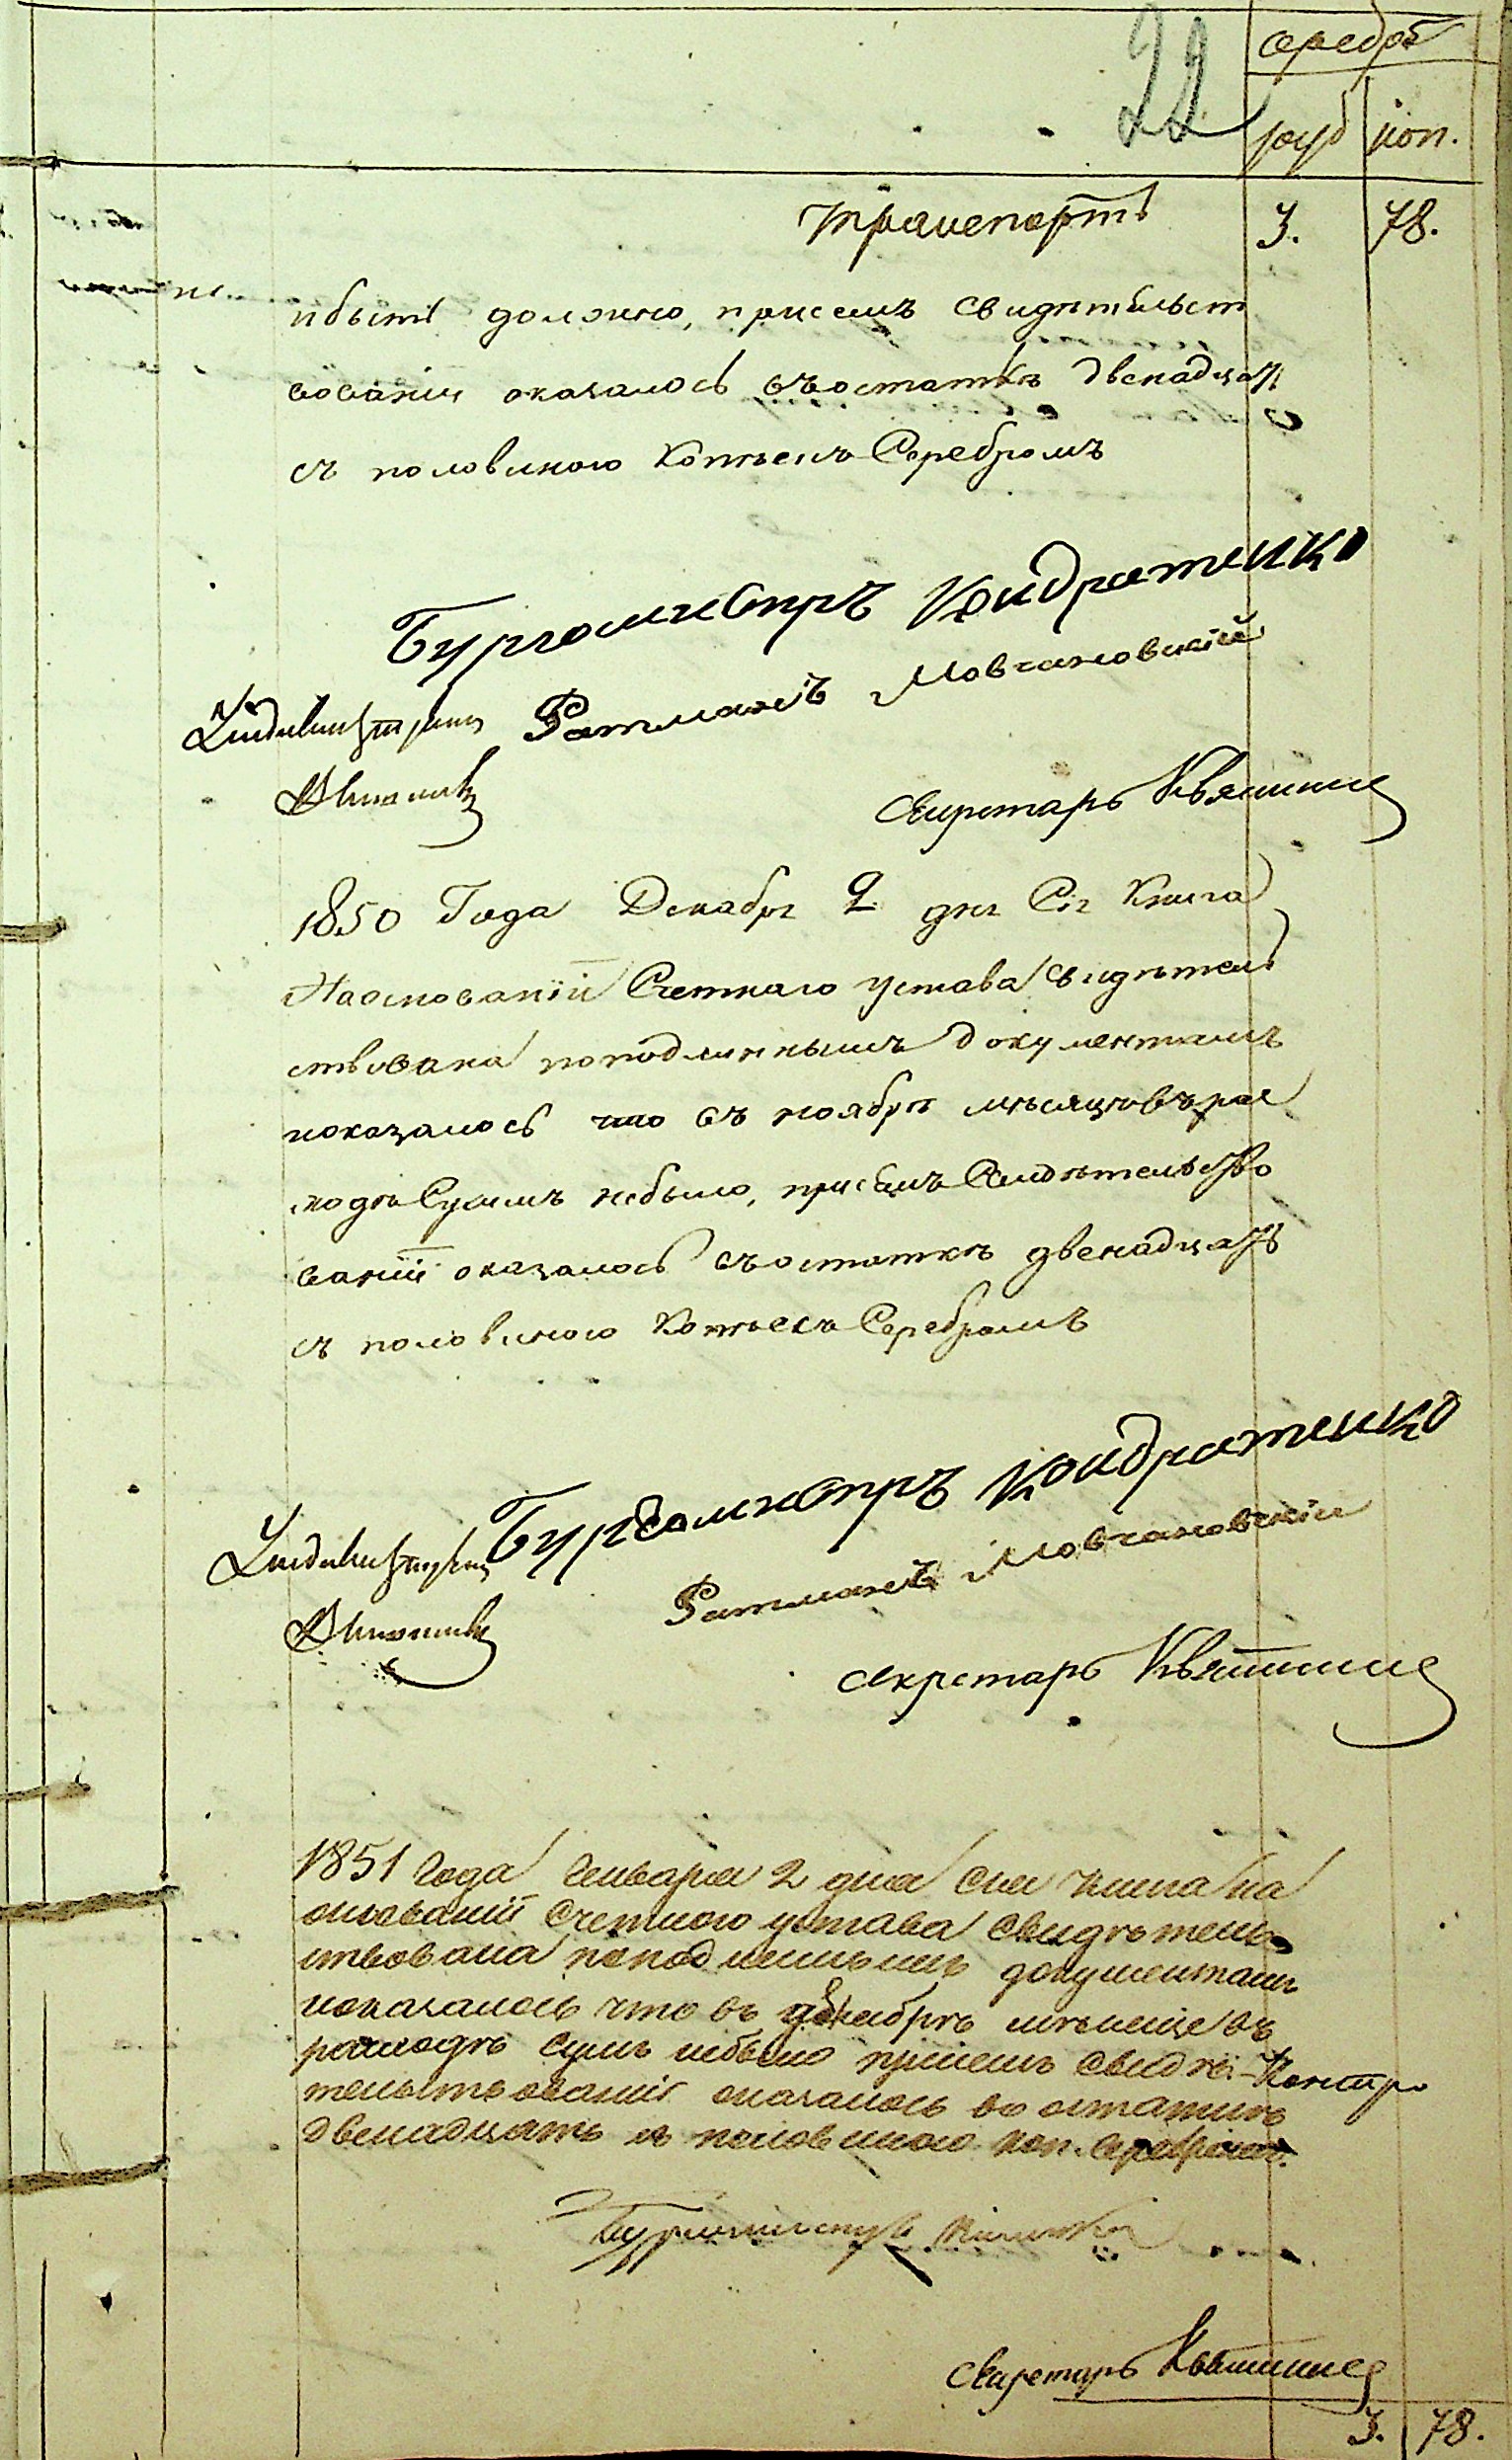 22
серебр
руб коп.
Транспортъ 3. 78.
и быть должно, присемъ свидѣтельст
вованіи оказалось въостаткѣ двенадцать
съ половиною Копѣекъ Серебромъ
Бургомистръ Кондратенко
Ратманъ Мовчановскій
Секретарь
1850 Года Декабря 2 дня Сія Книга
Наоснованіи Счетнаго устава свидѣтель
ствована поподлиннымъ документамъ
показалось что въ ноябрѣ мѣсяцѣ въ рас
ходѣ Сумъ небыло, присемъ Свидѣтельство
ваніи оказалось въостаткѣ двенадцать
съ половиною Копѣекъ Серебромъ
Бургомистръ Кондратенко
Ратманъ Мовчановскій
Секретарь
1851 Года Генваря 2 дня сія книга на
основаніи счетного устава свидѣтель
ствована поподленнымъ документамъ
показалось что въ декабрѣ месяце въ
расходѣ сумъ небыло присемъ свидѣ-
тельствованіи оказалось во остаткѣ
двенадцать съ половиною коп. серебромъ.
Секретарь
3. 78.